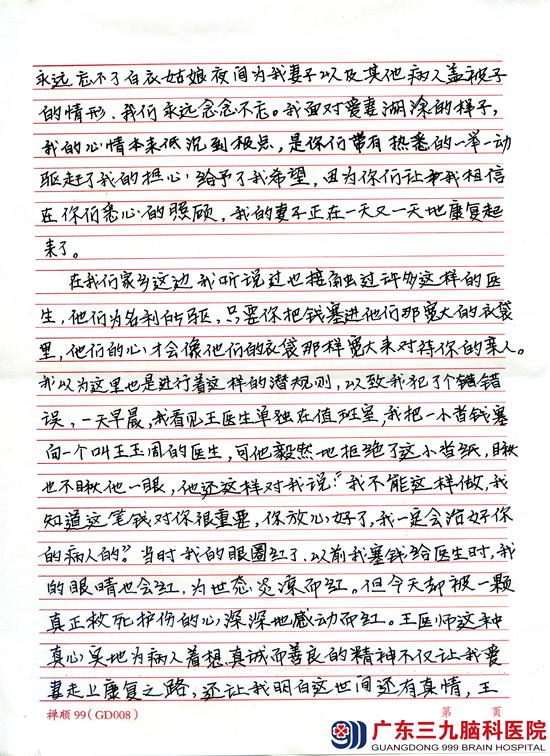 永远忘不了白衣姑娘夜间为我妻子以及其他病人盖被子
的情形,我们永远念念不忘。我面对爱妻湖涂的样子,
我的心情本来低沉到极点,是你们带有热悉的一举一动
驱赶了我的担心给予了我希望,因为你们让我相信
在你们悉心的照顾,我的妻子正在一天又一天地康复起
来了。
在我们家乡这边我听说过也接触过许多这样的医
生,他们为名利所驱,只要你把钱塞进他们那宽大的衣袋
里,他们的心才会像他们的衣袋那样宽大来对待你的亲人。
我以为这里也是进行着这样的潜规则,以致我犯了个错
误,一天早晨,我看见王医生单独在值班室,我把一小沓钱塞
向一个叫王玉周的医生,可他毅然地拒绝了这小沓纸,瞅
也不瞅他一眼,他还这样对我说:“我不能这样做,我
知道这笔钱对你很重要,你放心好了,我一定会治好你
的病人的。”当时我的眼圈红了,以前我塞钱给医生时,我
的眼睛也会红,为世态炎凉而红。但今天却被一颗
真正救死护伤的心深深地感动而红。王医师这种
真心实地为病人着想,真诚而善良的精神不仅让我爱
妻走上康复之路,还让我明白这世间还有真情,王
禅顺99(GD008) 第 页
广东三九脑科医院
GUANGDONG 999 BRAIN HOSPITAL